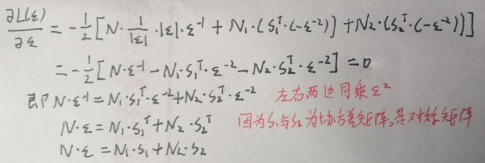 ∂L(ε)/∂ε = -1/2 [N·1/|ε|·|ε|·ε⁻¹ + N₁·(S₁ᵀ·(-ε⁻²)) + N₂·(S₂ᵀ·(-ε⁻²))]
= -1/2 [N·ε⁻¹ - N₁·S₁ᵀ·ε⁻² - N₂·S₂ᵀ·ε⁻²] = 0
即 N·ε⁻¹ = N₁·S₁ᵀ·ε⁻² + N₂·S₂ᵀ·ε⁻² 左右两边同乘 ε²
N·ε = N₁·S₁ᵀ + N₂·S₂ᵀ 因为S₁与S₂为协方差矩阵,是对称矩阵
N·ε = N₁·S₁ + N₂·S₂